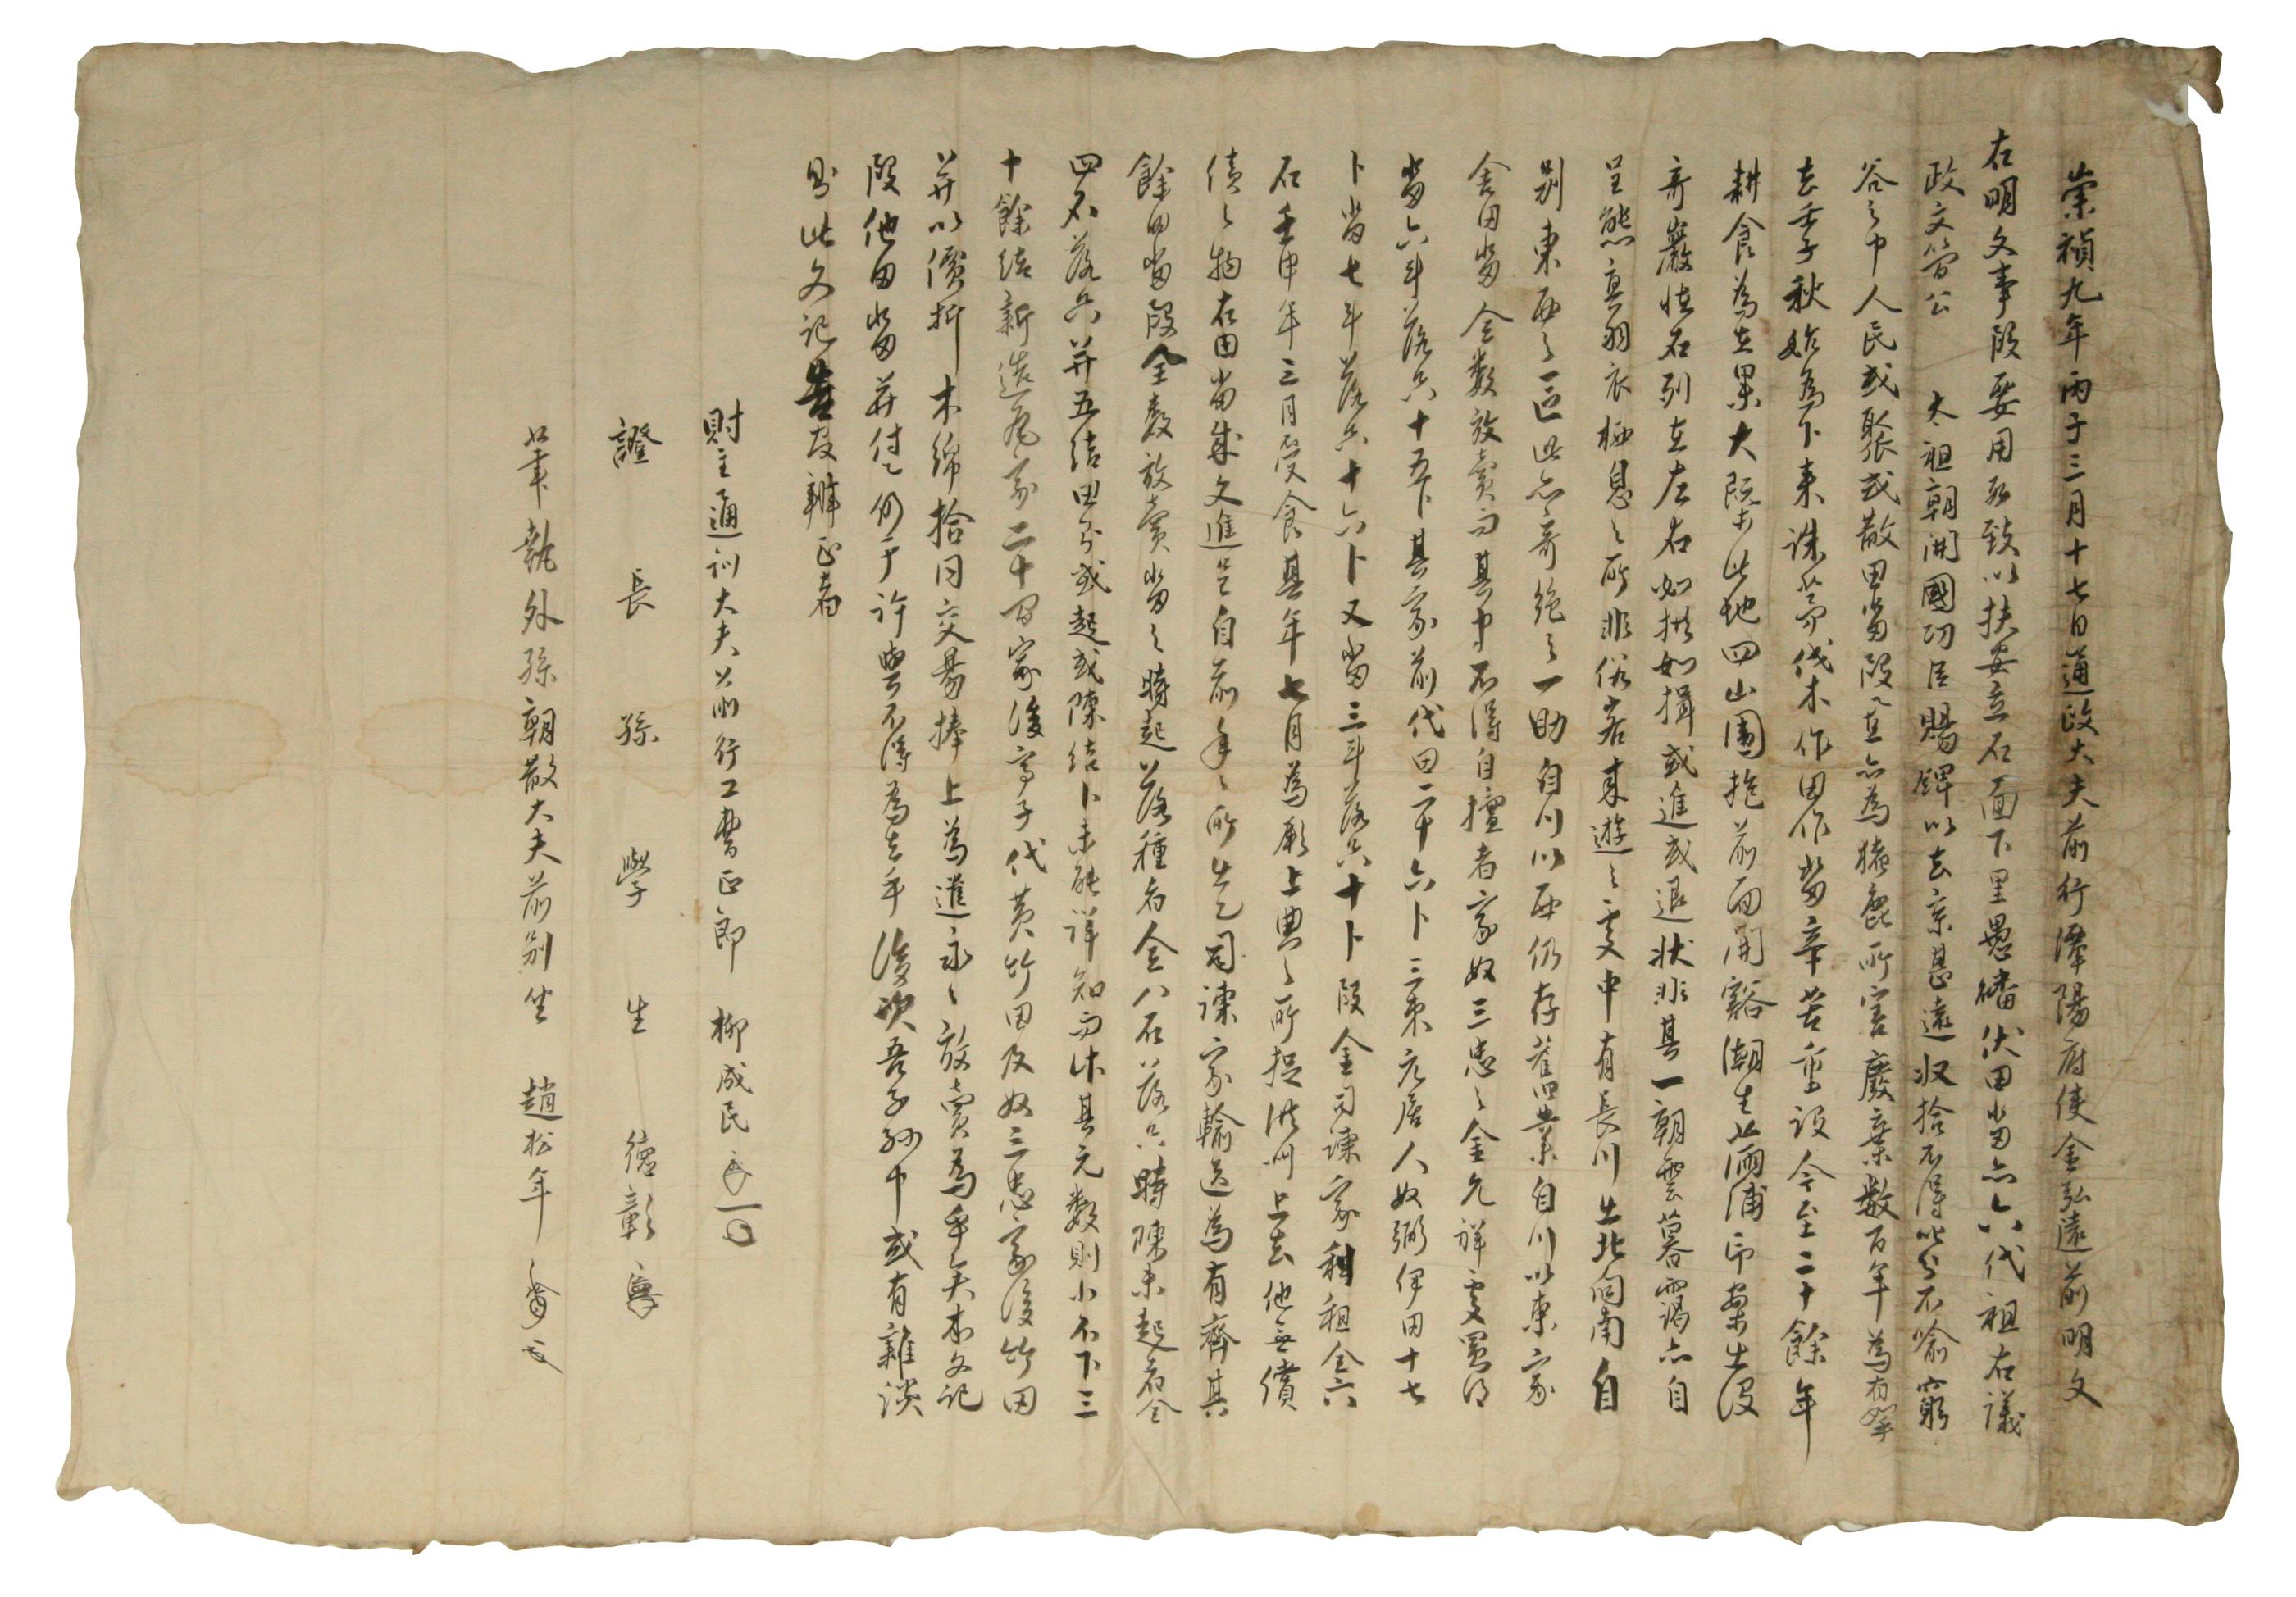 崇禎九年丙子三月十七日通政大夫前行潭陽府使金弘遠前明文
右明文事段要用所致以扶安立石面下里愚磻伏田畓亦六代祖右議
政文簡公 太祖朝開國功臣賜牌以去京甚遠收拾不得叱分不喩窮
谷之中人民或聚或散田畓段置亦為猪鹿所害廢棄數百年為有如乎
去壬子秋始為下來誅茅伐木作田作畓辛苦重設今至二十餘年
耕食為在果大槩此地四山圍抱前面開豁潮生萹浦印案出沒
奇巖怪石列在左右如拱如揖或進或退狀非其一朝雲暮靄亦自
呈態真羽衣栖息之所非俗客來遊之處中有長川出北向南自
別東西之一區此亦奇絶之一助自川以西仍存舊業自川以東家
舍田畓全數放賣而其中不得自擅者家奴三忠之金允祥處買得
畓六斗落只十五卜其家前代田二十六卜三束元居人奴弼伊田十七
卜畓七斗落只十六卜又畓三斗落只十卜段金司諫家租租全六
石壬申年三月受食其年七月為刷上典之所捉洪州上去他無償
債之物右田畓成文進呈自前年之所先司諫家輸送為有齊其
餘田畓段全數放賣畓之時起落種者全八石落只時陳未起者全
四石落只幷五結田乃或起或陳結卜未能詳知而此其元數則小不下三
十餘結新造瓦家二十間家後亭子代苧竹田及奴三忠家後竹田
幷以價折木綿拾同交易捧上為遣永永放賣為乎矣本文記
段他田畓幷付乙仍于許與不得為去乎後次吾子孫中或有雜談
則此文記告官辨正者
財主通訓大夫前行工曹正郎 柳成民
證 長孫 學生 德彰
筆執外孫朝散大夫前別坐 趙松年